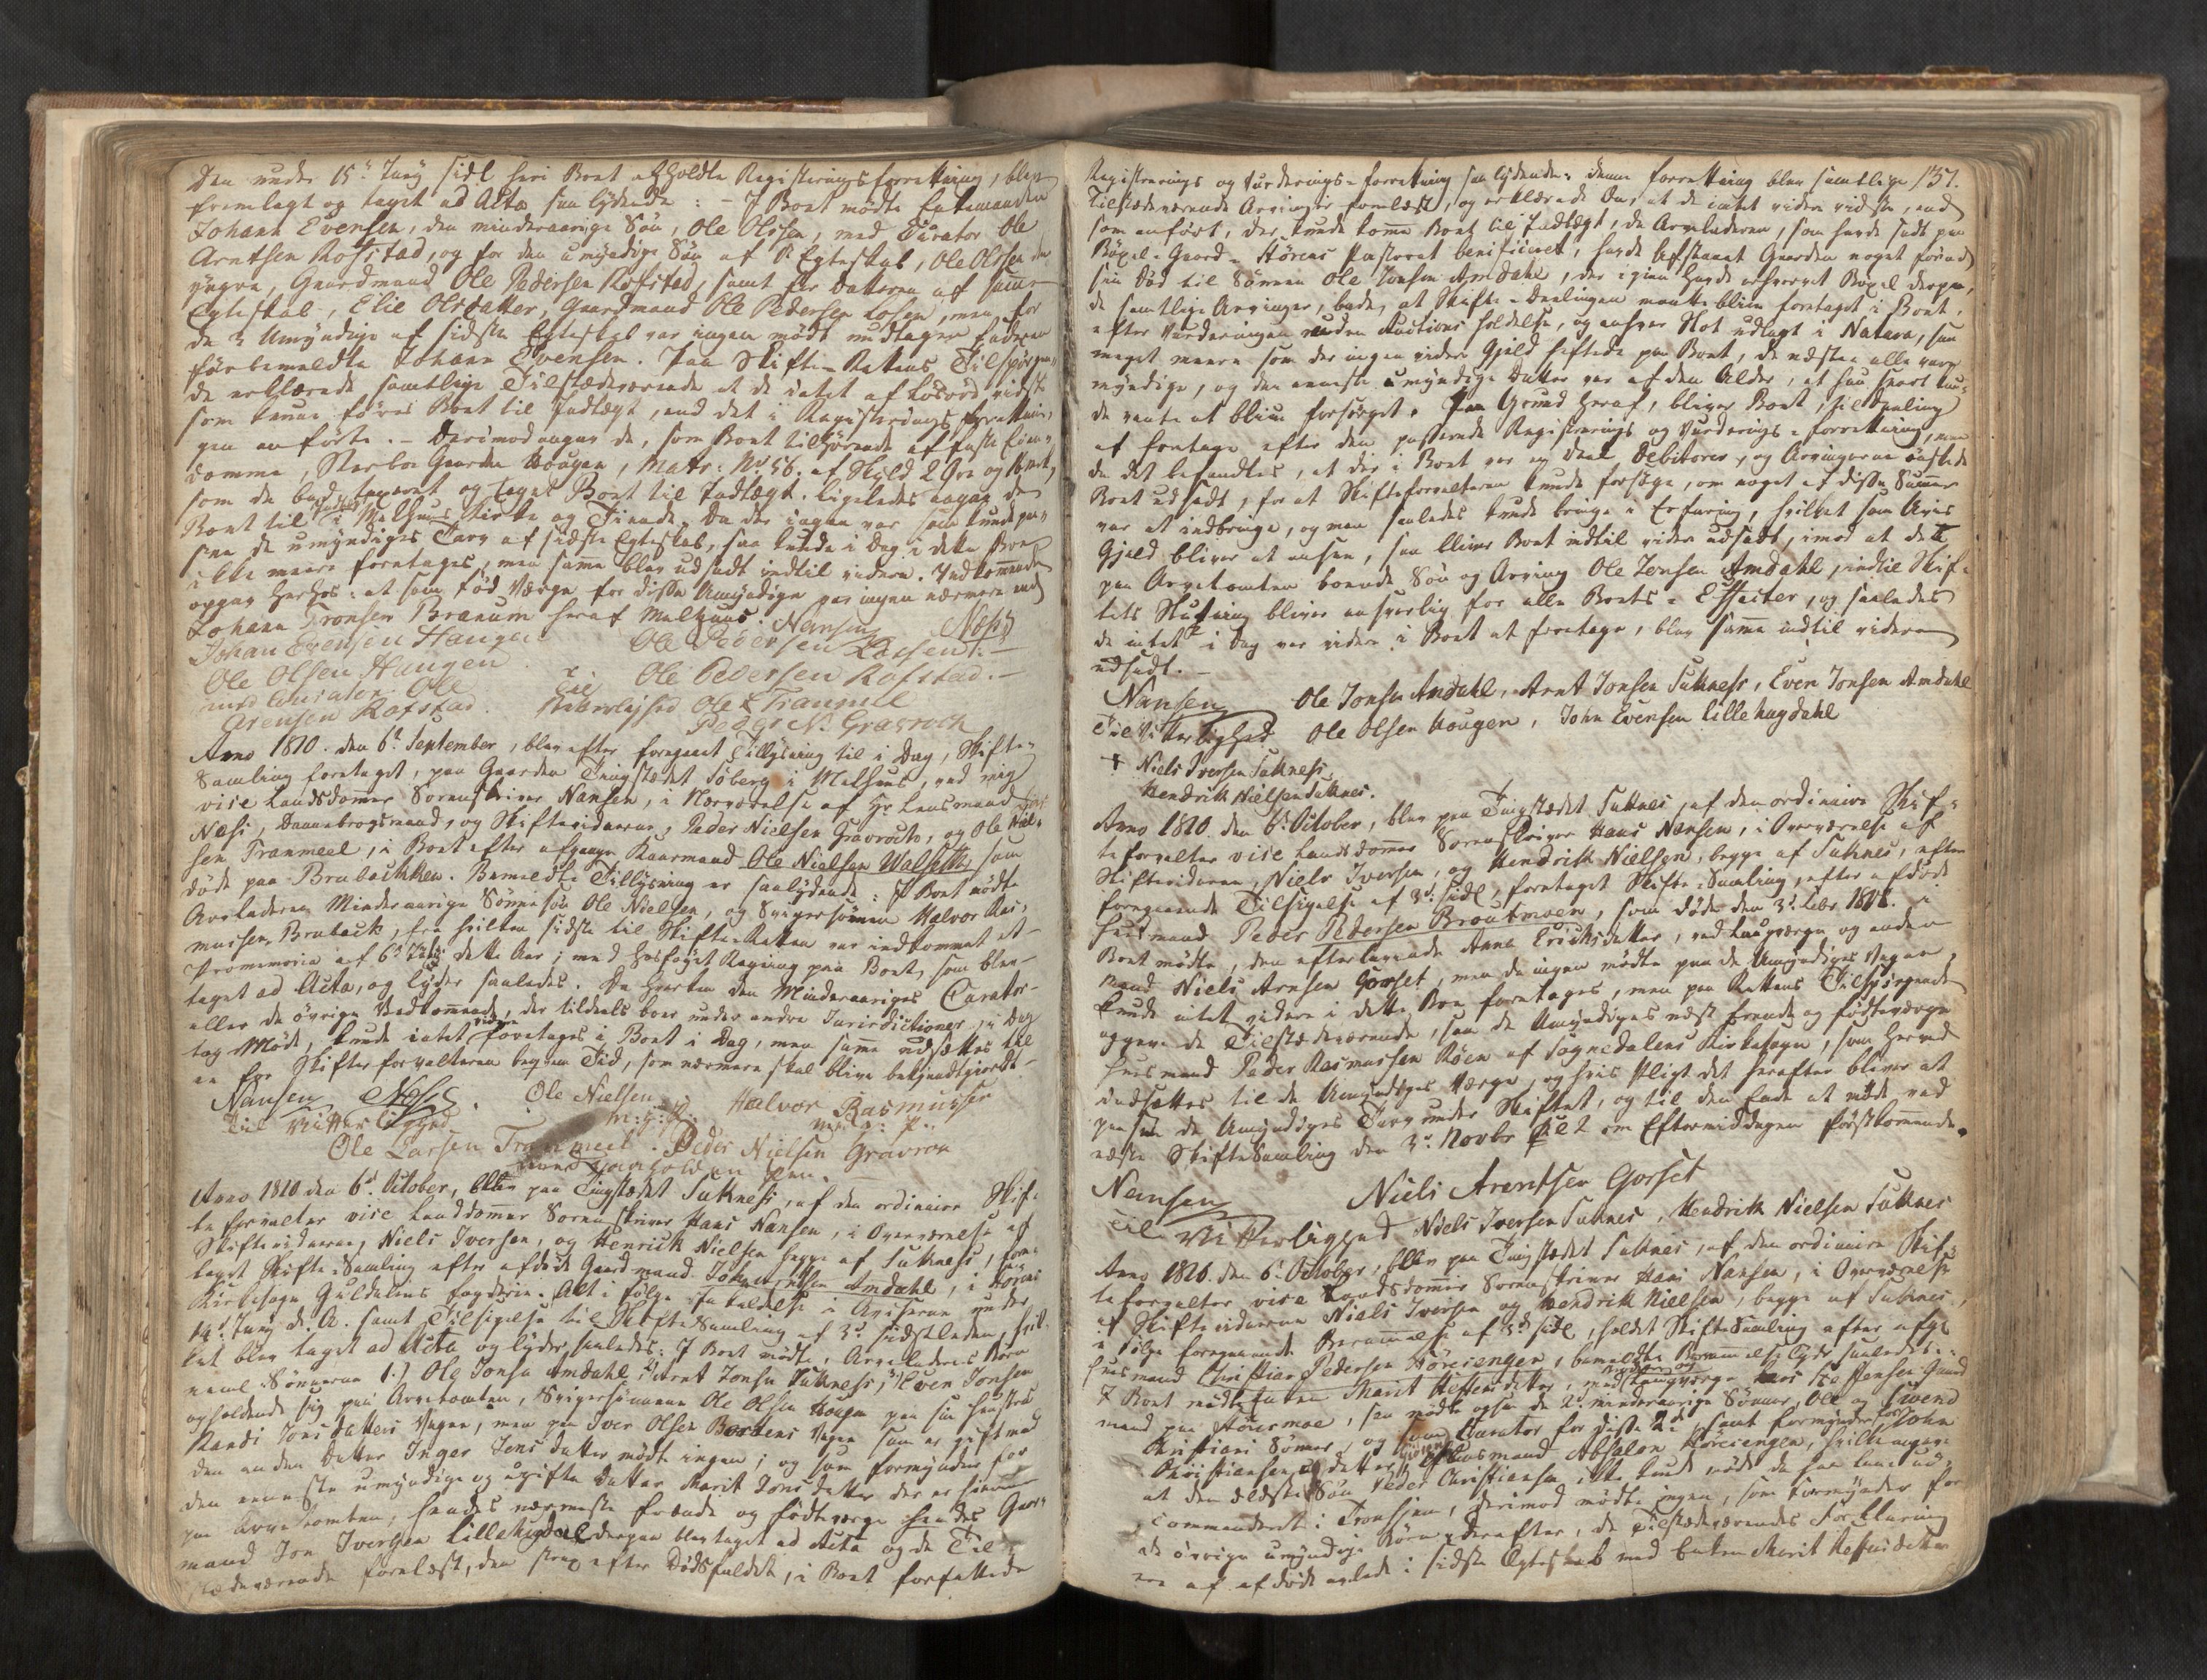 Den under 15de Juny sidl heri Boet afholdte Registeringsforretning, blev
fremlagt og taget ad Acta saa lydende: - I Boet mødte Enkemanden
Johann Evensen, den mindreaarige Søn, Ole Olsen, med Curator Ole
Arntsen Rofstad, og for den umyndige Søn af 1ste Egteskab, Ole Olsen den
yngre, Gaardmand Ole Pedersen Rofstad, samt for Datteren af samme
Egteskab, Elie Olsdatter, Gaardmand Ole Pedersen Losen, men for
de 3 Umyndige af sidste Egteskab var ingen mødt undtagen Faderen
førbemeldte Johann Evensen. Paa Skifte-Rettens Tilspørgen-
de erklærede samtlige Tilstædeværende at de intet af Løsøre vidste
som kunde føres Boet til Indtægt, end det i Registerings forretnin-
gen anførte. - Derimod angav de, som Boet tilhørende af faste Eien-
domme, Gaarden Hougen, Matr: No 56. af Skyld 2 Øre
som de bad taxeret og taget Boet til Indtægt. Ligeledes angav de
Boet til i Melhuus Kirke og Tiende. Da der ingen var som kunde paa-
see de umyndiges Tarv af sidste Egteskab, saa kunde i Dag i dette Boe
ikke meere foretages, men samme blev udsadt indtil videre.
opgav herhos: at som fød Værge for disse Umyndige var ingen nærmere end
Johann Tronsen Brenum heraf Melhuus. Nansen Næss
Johan Evensen Haugen Ole Pedersen Losen. -
Ole Olsen Haugen Ole Pedersen Rofstad. -
med Curator Ole Til
Arensen Rofstad. Vitterlighed Ole Tranmel
Peder N. Gravrock
Anno 1810. den 6te September, blev efter foregaaet Tillysning til i Dag, Skifte-
Samling foretaget, paa Gaarden Tingstædet Søberg i Melhuus, ved mig
vice Landsdommer Sorenskriver Nansen, i Nærværelse af Hr. Lensmand
Næss, Dannebrogsmand, og Skiftevidnerne, Peder Nielsen Gravrock, og Ole
sen Tranmeel, i Boet efter afgangne Kaarmand Ole Nielsen Walsette, som
døde paa Brubachken. Bemeldte Tillysning er saalydende: I Boet mødte
Arveladeren Mindreaarige Sønnesøn Ole Nielsen, og Svigersønnen Halvor Ras-
mussen Bruback, fra hvilken sidste til Skifte-Retten var indkommet et
Promemoria af 6te dette Aar; med hosføyet Regning paa Boet, som blev
taget ad Acta, og lyder saaledes. Da hverken den Mindreaariges Curator
eller de øvrige Vedkommende, der tildeels boer under andre Jurisdictioner, i Dag
tog Møde, kunde intet videre foretages i Boet i Dag, men samme udsættes til
en for Skifteforvalteren beqvem Tid, som nærmere skal blive bekjendtgiordt. -
Nansen Næss. Ole Nielsen Halvor Rasmussen
Til Vitterlighed m: f: P: m: f: P:
Ole Larsen Tranmeel. Peder Nielsen Gravrok
med paaholden Pen.
Anno 1810 den 6te October, blev paa Tingstædet Sukness, af den ordinaire Skif-
te forvalter vice Landdommer Sorenskriver Hans Nansen, i Overværelse af
Skiftevidnerne, Niels Iversen, og Henrick Nielsen begge af Sukness, fore-
taget Skifte-Samling efter afdøde Gaardmand John Amdahl, i Hørens
Kirkesogn Guldalens fogderie. Alt i følge Indkaldelse i Aviserne under
14de Juny d. A. samt Tilsigelse til Skifte Samling af 3de sidstleden, hvil-
ket blev taget ad Acta og lyder saaledes: I Boet mødte, Arveladerens Børn
neml: Sønnerne 1.) Ole Jonsen Amdahl, 2) Arnt Jonsen Sukness, 3) Even Jonsen
opholdende sig paa Arvetomten, Svigersønnen Ole Olsen Hougen paa sin Hustrue
Randi Jonsdatters Vegne, men paa Iver Olsen Bortens Vegne som er gift med
den anden Datter Inger Jonsdatter mødte ingen; og som formynder for
den eeneste umyndige og ugifte Datter Marit Jonsdatter der er hiemme
paa Arvetomten, hendes nærmeste Frænde og fødteværge Gaard-
mand Jon Iversen Lillehugdal derpaa blev taget ad Acta og de Til-
stædeværende forelæst, den strax efter Dødsfaldet, i Boet forfattede
Registrerings og Vurderings-Forretning saa lydende: denne forretning blev samtlige 137.
Tilstædeværende Arvinger forelæst, og erklærede Den, at de intet videre vidste, end
som anført, der kunde komme Boet til Indtægt, da Arveladeren, som havde sadt paa
Bøxel-Gaard-Hørens Pastorat benificeret, havde afstaaet Gaarden noget førend
sin Død til Sønnen Ole Jonsen Amdahl, der igien havde erhvervet Bøxel derpaa,
de samtlige Arvinger, bade, at Skifte-Deelingen maatte blive foretaget i Boet,
efter Vurderingen uden Auctions holdelse, og enhver Lod udlagt i Natura, saa
meget meere som der ingen videre Gjeld heftede paa Boet, de næsten alle vare
myndige, og den eeneste umyndige Datter var af den Alder, at hun snart kun-
de vente at blive forsørget. Paa Grund heraf, bliver Boet, til Deeling
at foretage efter den passerede Registrerings og Vurderings-forretning, men
da det befandtes, at der i Boet var en Deel Debitorer, og Arvingerne ønskede
Boet udsadt, for at Skifteforvalteren kunde forsøge, om noget af disse Summer
var at indbringe, og man saaledes kunde bringe i Erfaring, hvilket som
Gjeld bliver at ansee, saa bliver Boet indtil videre udsadt, imod at den
paa Arvetomten boende Søn og Arving Ole Jonsen Amdahl, indtil Skif-
tets Slutning bliver ansvarlig for alle Boets-Effecter, og saaledes
da intet i Dag var videre i Boet at foretage, blev samme indtil videre
udsadt. -
Nansen Ole Jonsen Amdahl, Arnt Jonsen Sukness, Even Jonsen Amdahl
Til Vitterlighed Ole Olsen Hougen, John Evensen Lillehugdahl
Niels Iversen Sukness,
Hendrik Nielsen Suknes.
Anno 1810. den 6te October, blev paa Tingstædet Suknes, af den ordinaire Skif-
te forvalter vice Landsdommer Sorenskriver Hans Nansen, i Overværelse af
Skiftevidnerne, Niels Iversen, og Hendrik Nielsen, begge af Suknes, efter
foregaaende Tilsigelse af 3de sidl, foretaget Skifte-Samling, efter afdøde
Huusmand Peder Pedersen Broutmoen, som døde den 3de Febr. i
Boet mødte, den efterlevende Anne Ericksdatter, ved Laugværge
mand Niels Arnsen Gorset, men da ingen mødte paa de Umyndiges Vegne,
kunde intet videre i dette Boe foretages, men paa Rettens Tilspørgende
opgave de Tilstædeværende, som de Umyndiges næste Frænde og fødteværge
Huusmand Peder Rasmussen Røen af Sognedalens Kirkesogn, som herved
indsættes til de Umyndiges Værge, og hvis Pligt det herefter bliver at
paasee de Umyndiges Tarv under Skiftet, og til den Ende at møde ved
næste Skifte Samling den 3de Novbr Kl 2 om Eftermiddagen førstkommende.
Nansen Niels Arentsen Gorset
Til Vitterlighed Niels Iversen Suknes, Hendrik Nielsen Suknes
Anno 1810. den 6te October, blev paa Tingstædet Suknes, af den ordinaire Skif-
te forvalter vice Landsdommer Sorenskriver Hans Nansen, i Overværelse
af Skiftevidnerne Niels Iversen og Hendrik Nielsen, begge af Suknes,
i følge foregaaende Berammelse af 3de sidl, holdet Skifte Samling efter afg:
Huusmand Christian Pedersen Hørciengen, bemeldte Berammelse lyder saaledes:
I Boet mødte Enken Marit Steffensdatter, med Laugværge Lars Steffensen Gaard
mand paa Hørsmoe, saa mødte ogsaa de 2de mindreaarige Sønner, Ole og Svend
Christians Sønner, og som Curator for disse 2de, samt formynder for John
Christiansen Huusmand Absalon Hørciengen, hvilke angave
at den ældste Søn Peder Christiansen ikke kunde møde da han var ud-
commanderet i Tronhjem, derimod mødte ingen, som Formynder for
de øvrige umyndige Børn, derefter, de Tilstædeværendes Forklaring
ere af afdøde avlede i sidste Egteskab med Enken Marit Steffensdatter